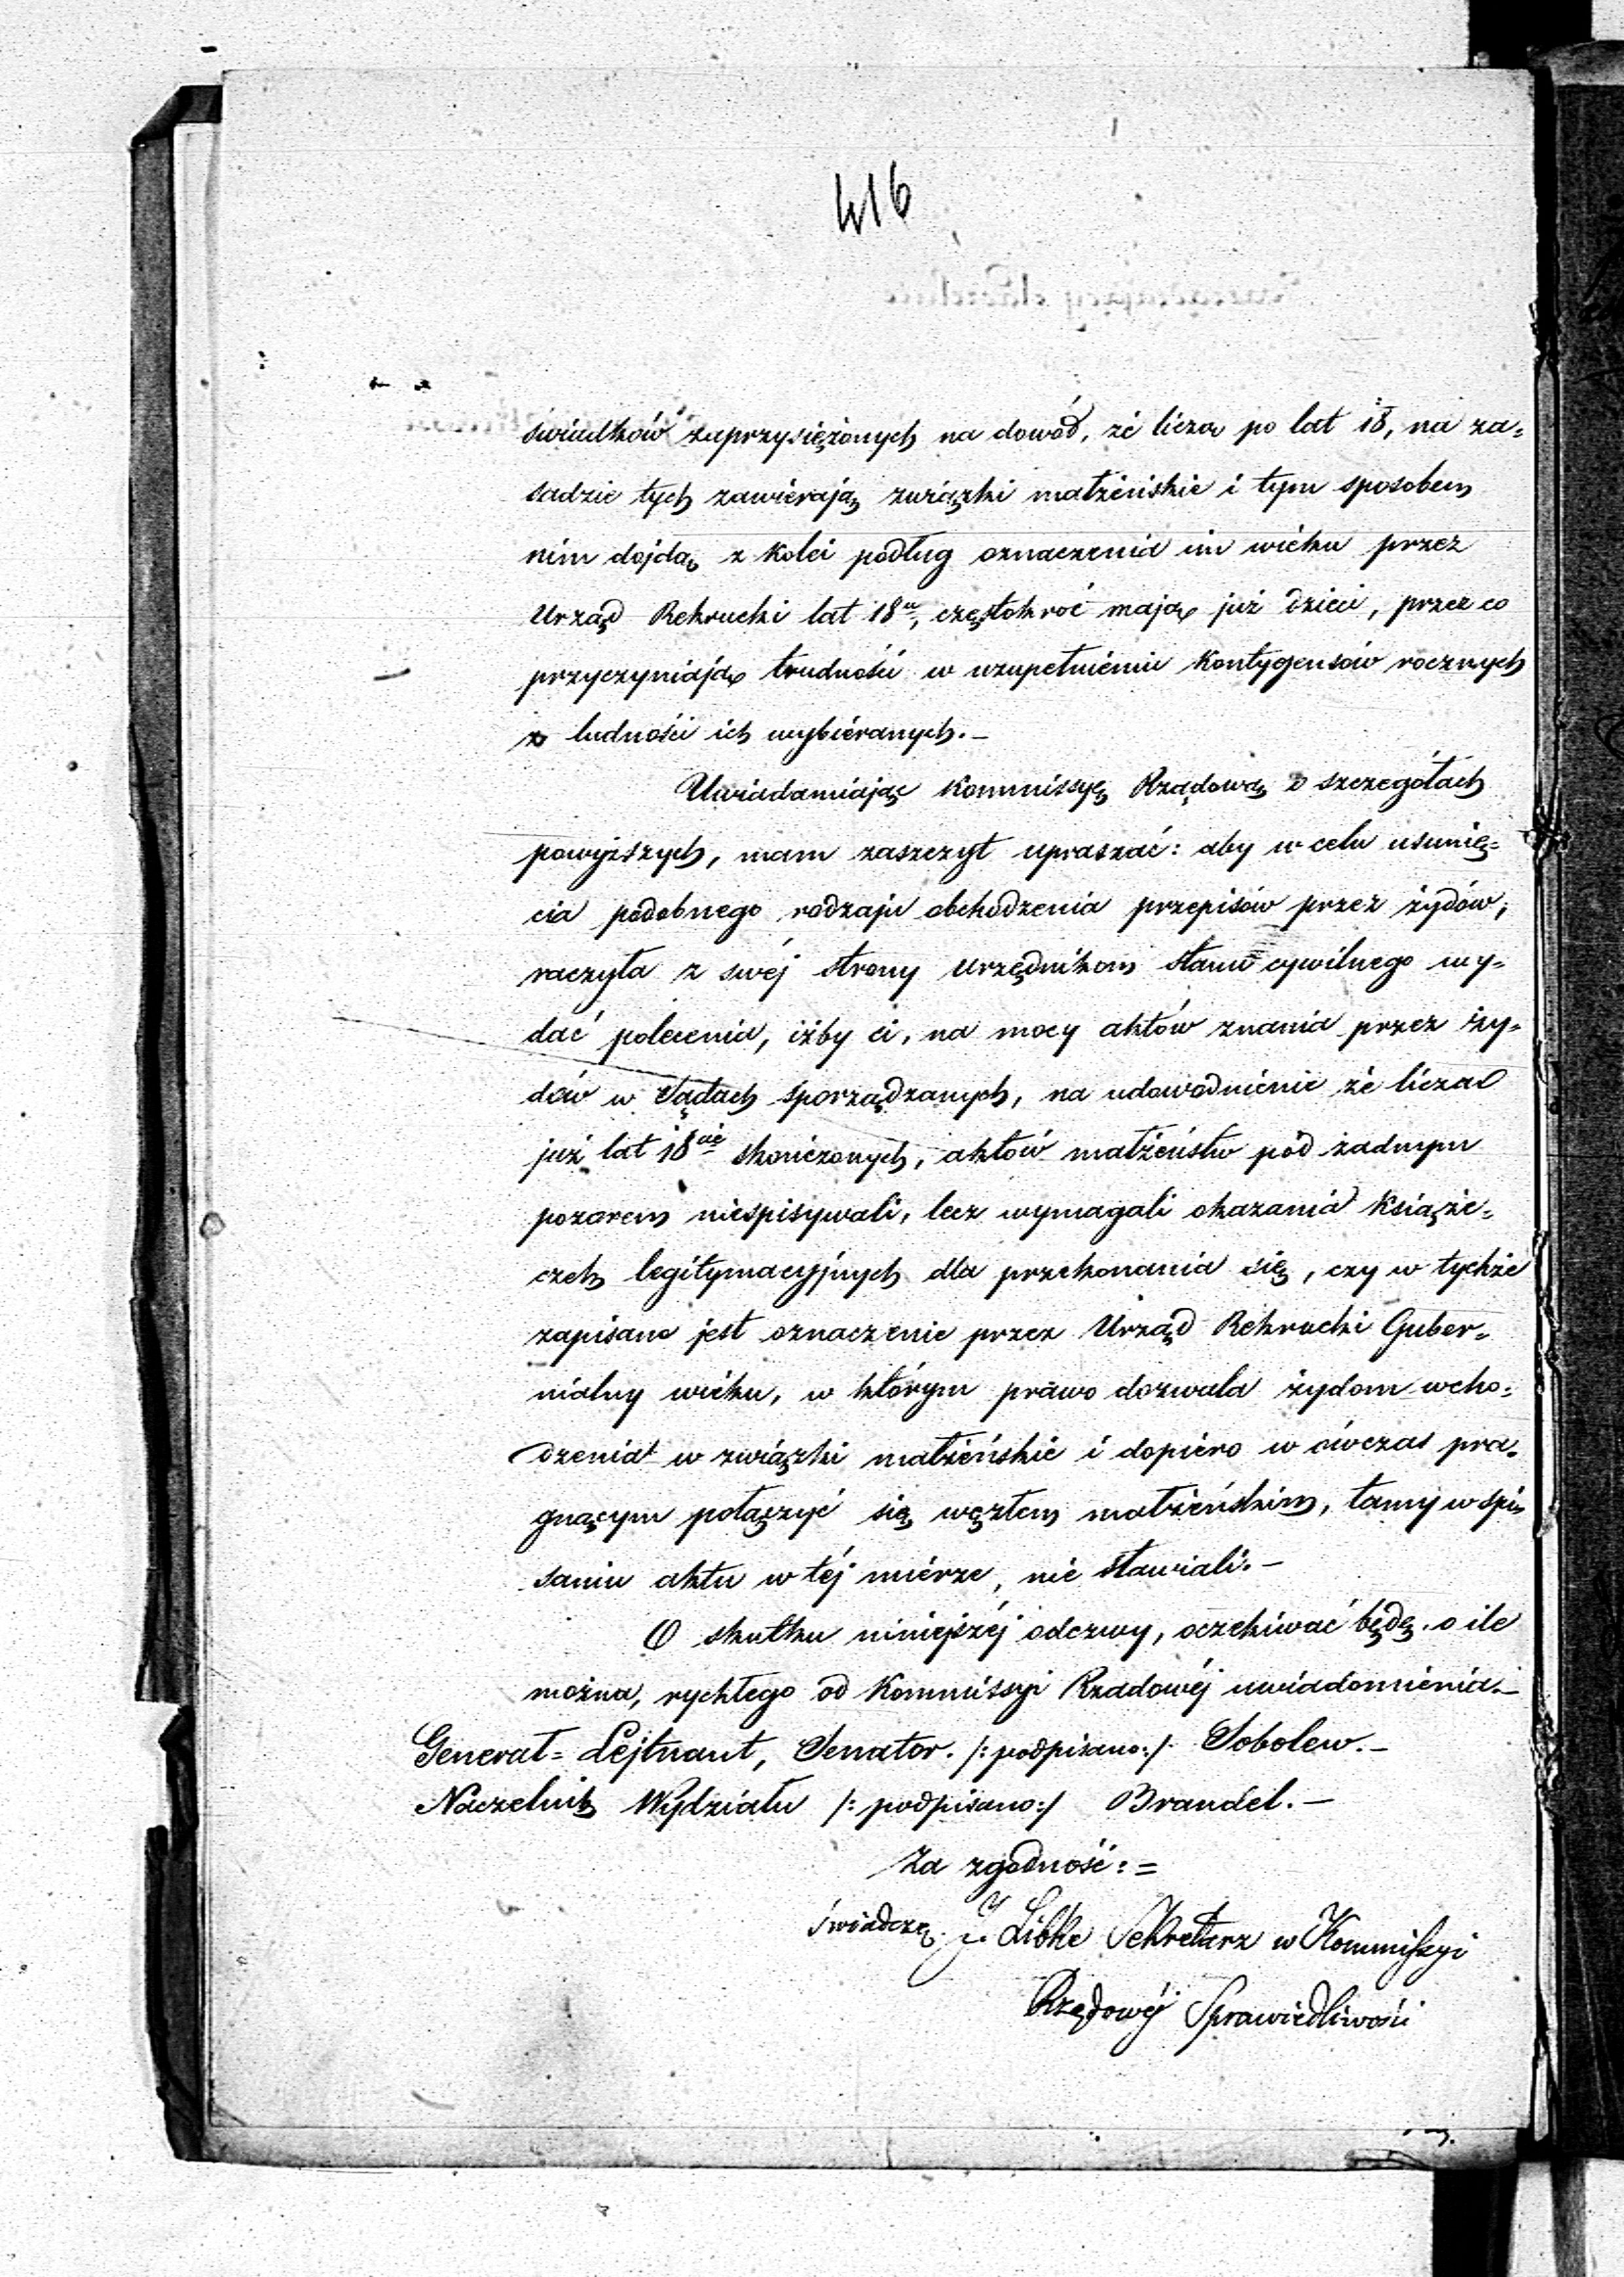 416
świadków zaprzysiężonych na dowód, że liczą po lat 18, na za=
sadzie tych zawierają związki małżeńskie i tym sposobem
nim dojdą z kolei podług oznaczenia im wieku przez
Urząd Rekrucki lat 18u, częstokroć mają już dzieci, przez co
przyczyniają trudności w uzupełnieniu Kontygensów rocznych
z ludności ich wybiéranych.—
Uwiadamiając Kommissyę Rządową o szczegółach
powyższych, mam zaszczyt upraszać: aby w celu usunię=
cia podobnego rodzaju obchodzenia przepisów przez żydów,
raczyła z swéj strony Urzędnikom stanu cywilnego wy=
dać polecenia, iżby ci, na mocy aktów znania przez ży=
dów w Sądach sporządzanych, na udowodnienie że liczą
już lat 18cie skończonych, aktów małżeństw pod żadnym
pozorem niespisywali, lecz wymagali okazania Książe=
czek legitymacyjnych dla przekonania się, czy w tychże
zapisano jest oznaczenie przez Urząd Rekrucki Guber=
nialny wieku, w którym prawo dozwala żydom wcho=
dzenia w związki małżeńskie i dopiéro w ówczas pra=
gnącym połączyć się węzłem małżeńskim, tamy w spi=
saniu aktu w téj miérze, nie stawiali.—
O skutku niniejszéj odezwy, oczekiwać będę o ile
można, rychłego od Kommissyi Rządowéj uwiadomienia.—
Generał=Lejtnant, Senator. /:podpisano:/ Sobolew.—
Naczelnik Wydziału /:podpisano:/ Brandel.—
Za zgodność:=
świadczę Libke Sekretarz w Kommissyi
Rządowéj Sprawiedliwości